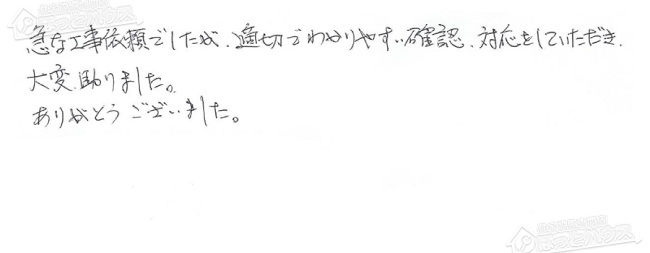 急な工事依頼でしたが、適切でわかりやすい確認、対応をしていただき、
大変助かりました。
ありがとうございました。